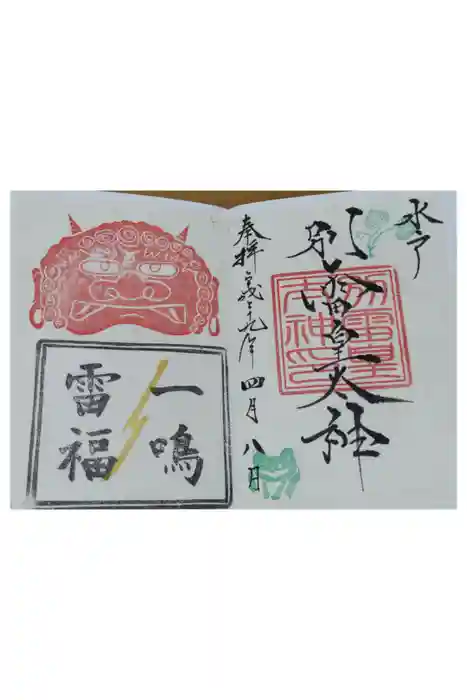 水戸
別雷皇太神
奉拝 平成二十九年 四月八日
一鳴
雷福